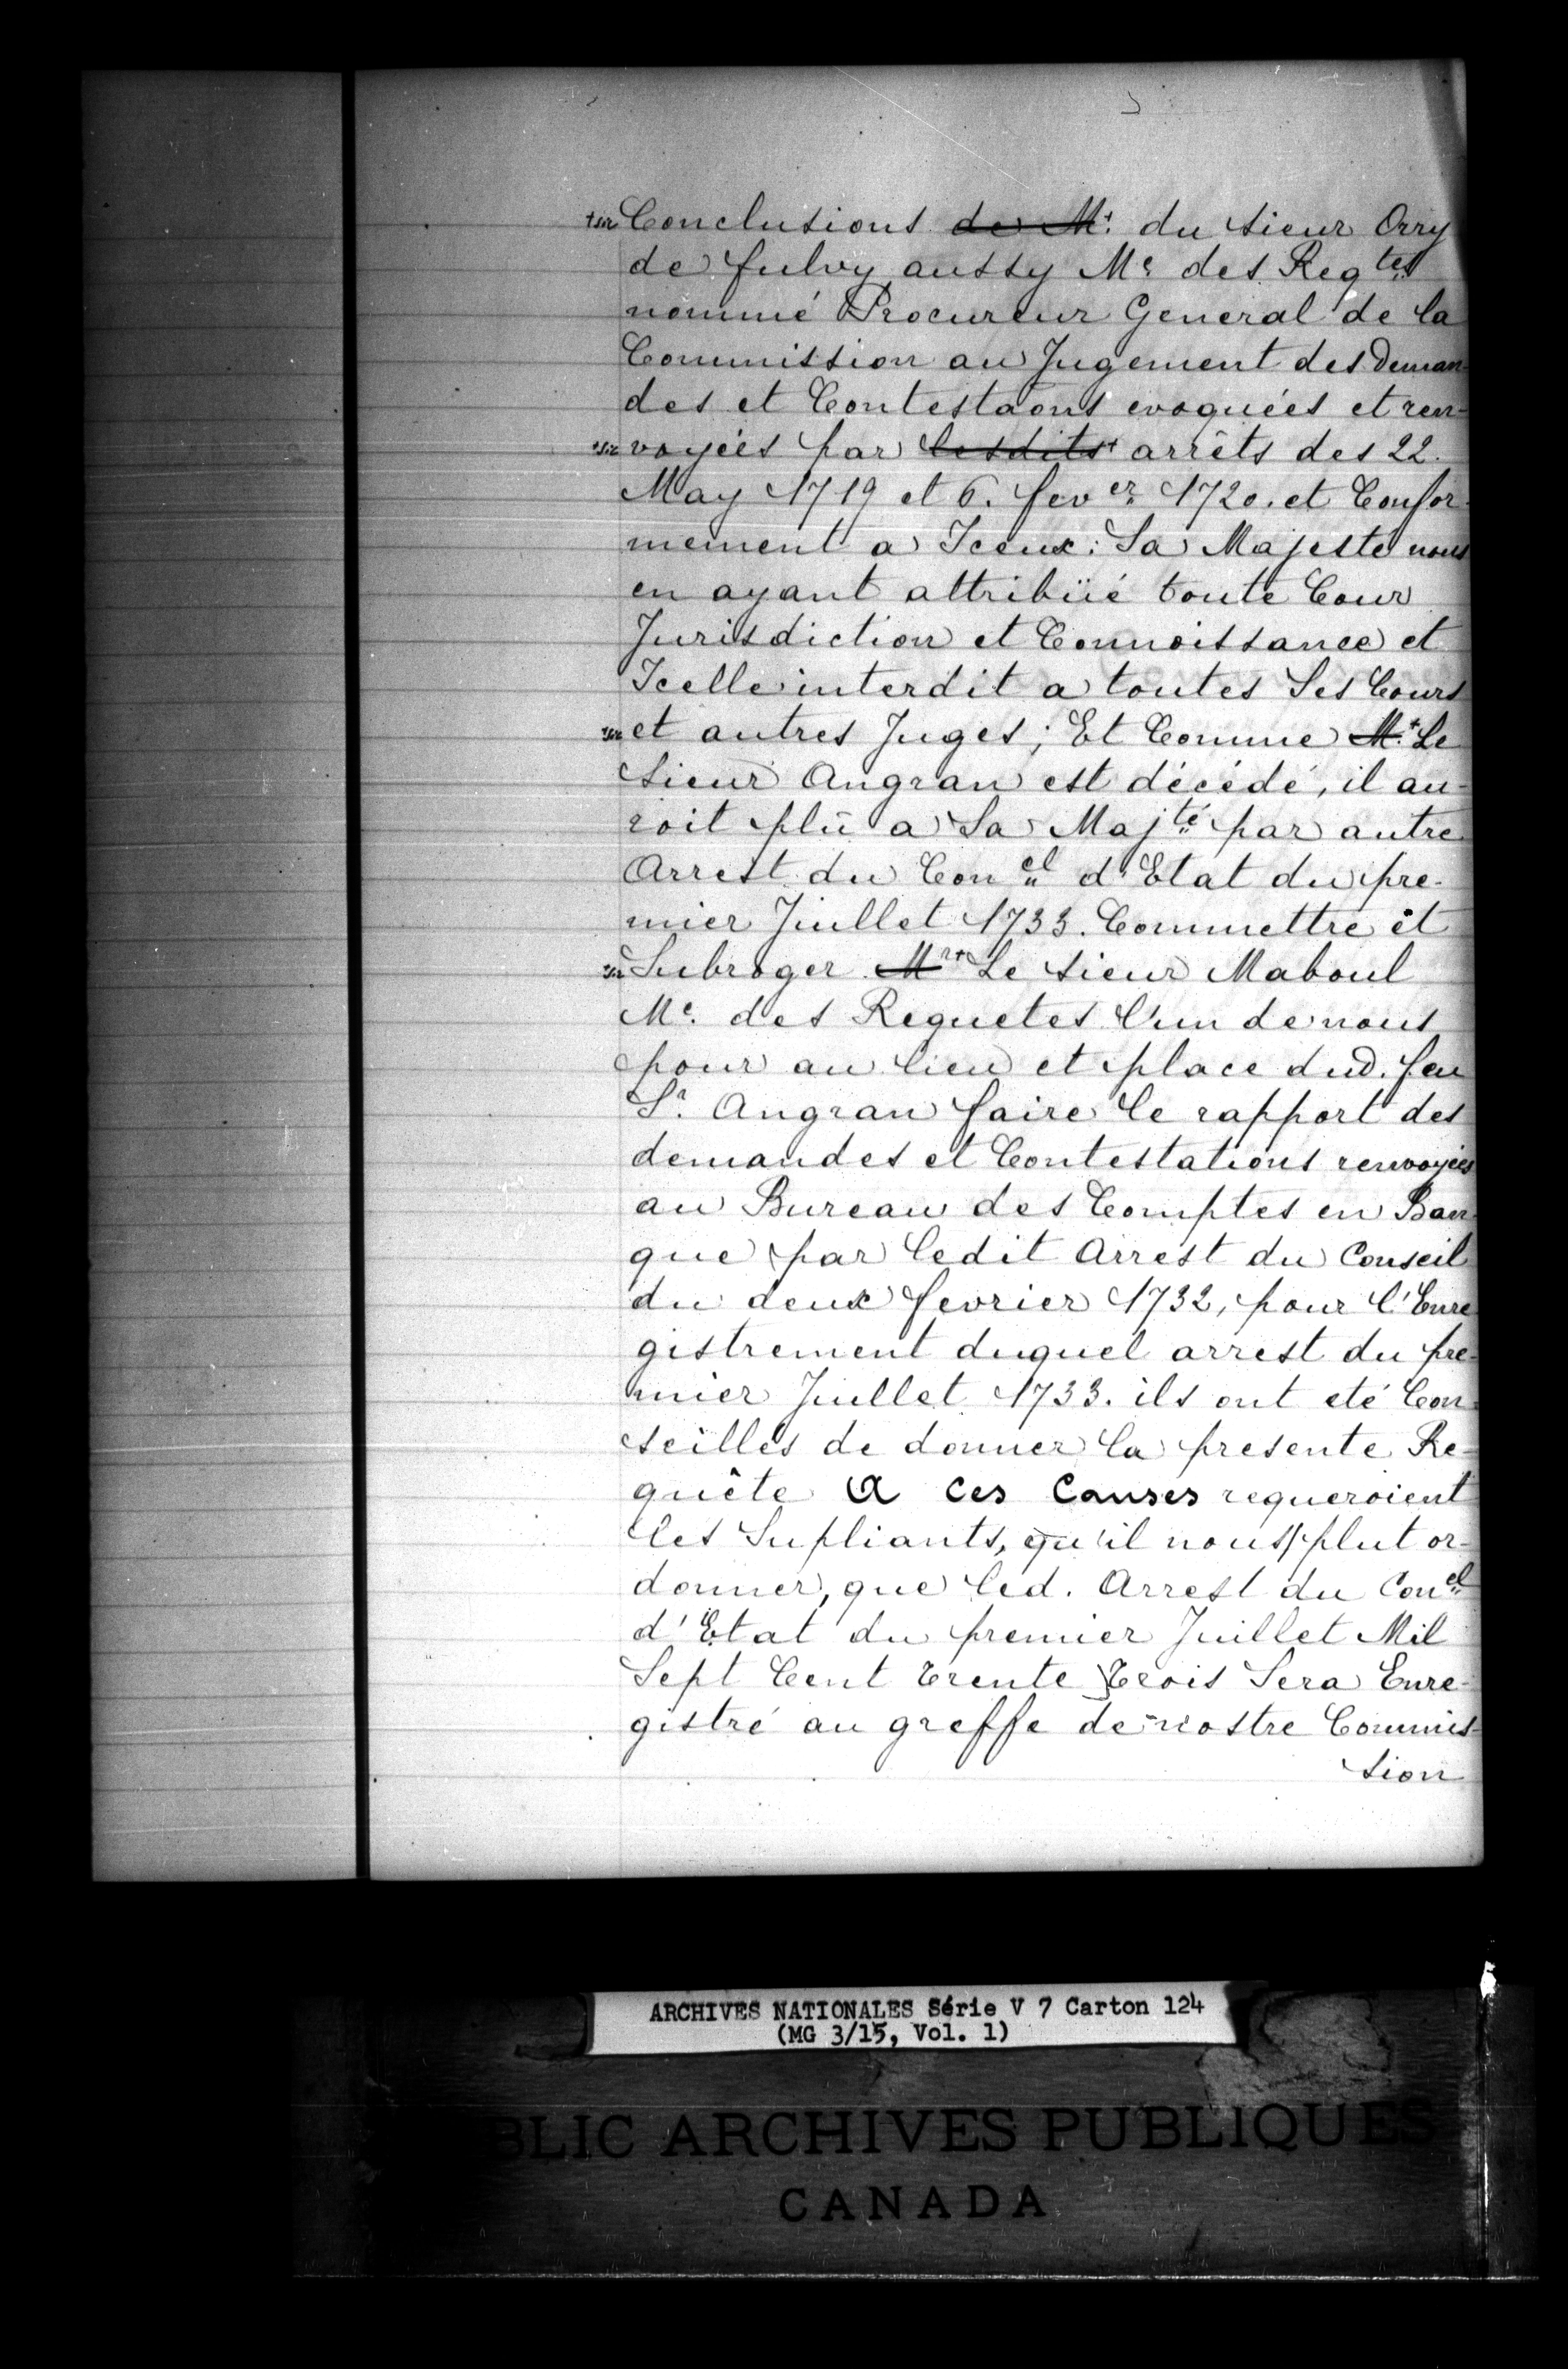 +sic Conclusions de Mr. du sieur Orry
de fulvy aussy Me des Reqtes
nommé Procureur General de la
Commission au Jugement des deman-
des et Contestaons evoquées et ren-
+sic voyées par lesdits+ arrêts des 22.
May 1719 et 6. fever 1720. et Confor-
mement a Iceux: Sa Majeste nous
en ayant attribüé toute Cour
Jurisdiction et Connoissance et
Icelle interdit a toutes Ses Cours
+sic et autres Juges; Et Comme Mr.+ Le
sieur Angran est décédé, il au-
roit plû a Sa Majté par autre
Arrest du Concl d'Etat du pre-
mier Juillet 1733. Commettre et
+sic Subroger Mr+ Le sieur Maboul
Me. des Requetes l'un de nous
pour au lieu et place dud. feu
Sr. Angran faire le rapport des
demandes et Contestations renvoyées
au Bureau des Comptes en Ban-
que par ledit Arrest du Conseil
du deux fevrier 1732, pour l'Enre
gistrement duquel arrest du pre-
mier Juillet 1733. ils ont eté Con-
seillés de donner la presente Re-
quête A ces Causes requeroient
les Supliants, qu'il nous plut or-
donner, que led. Arrest du Concl
d'Etat du premier Juillet Mil
Sept Cent trente trois Sera Enre-
gistré au greffe de nostre Commis-
sion
ARCHIVES NATIONALES Série V 7 Carton 124
(MG 3/15, Vol. 1)
BLIC ARCHIVES PUBLIQUES
CANADA